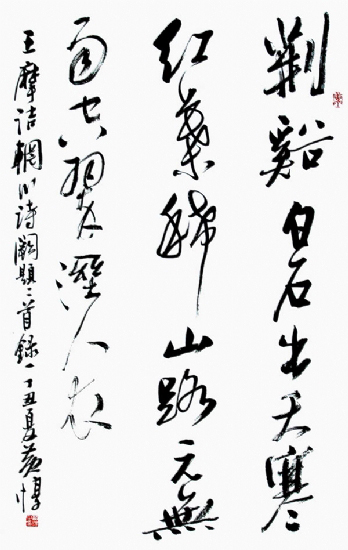 荆谿白石出天寒
紅葉稀山路元無
雨空翠濕人衣
王摩詰輞川詩闕題二首錄一丁丑夏黄惇